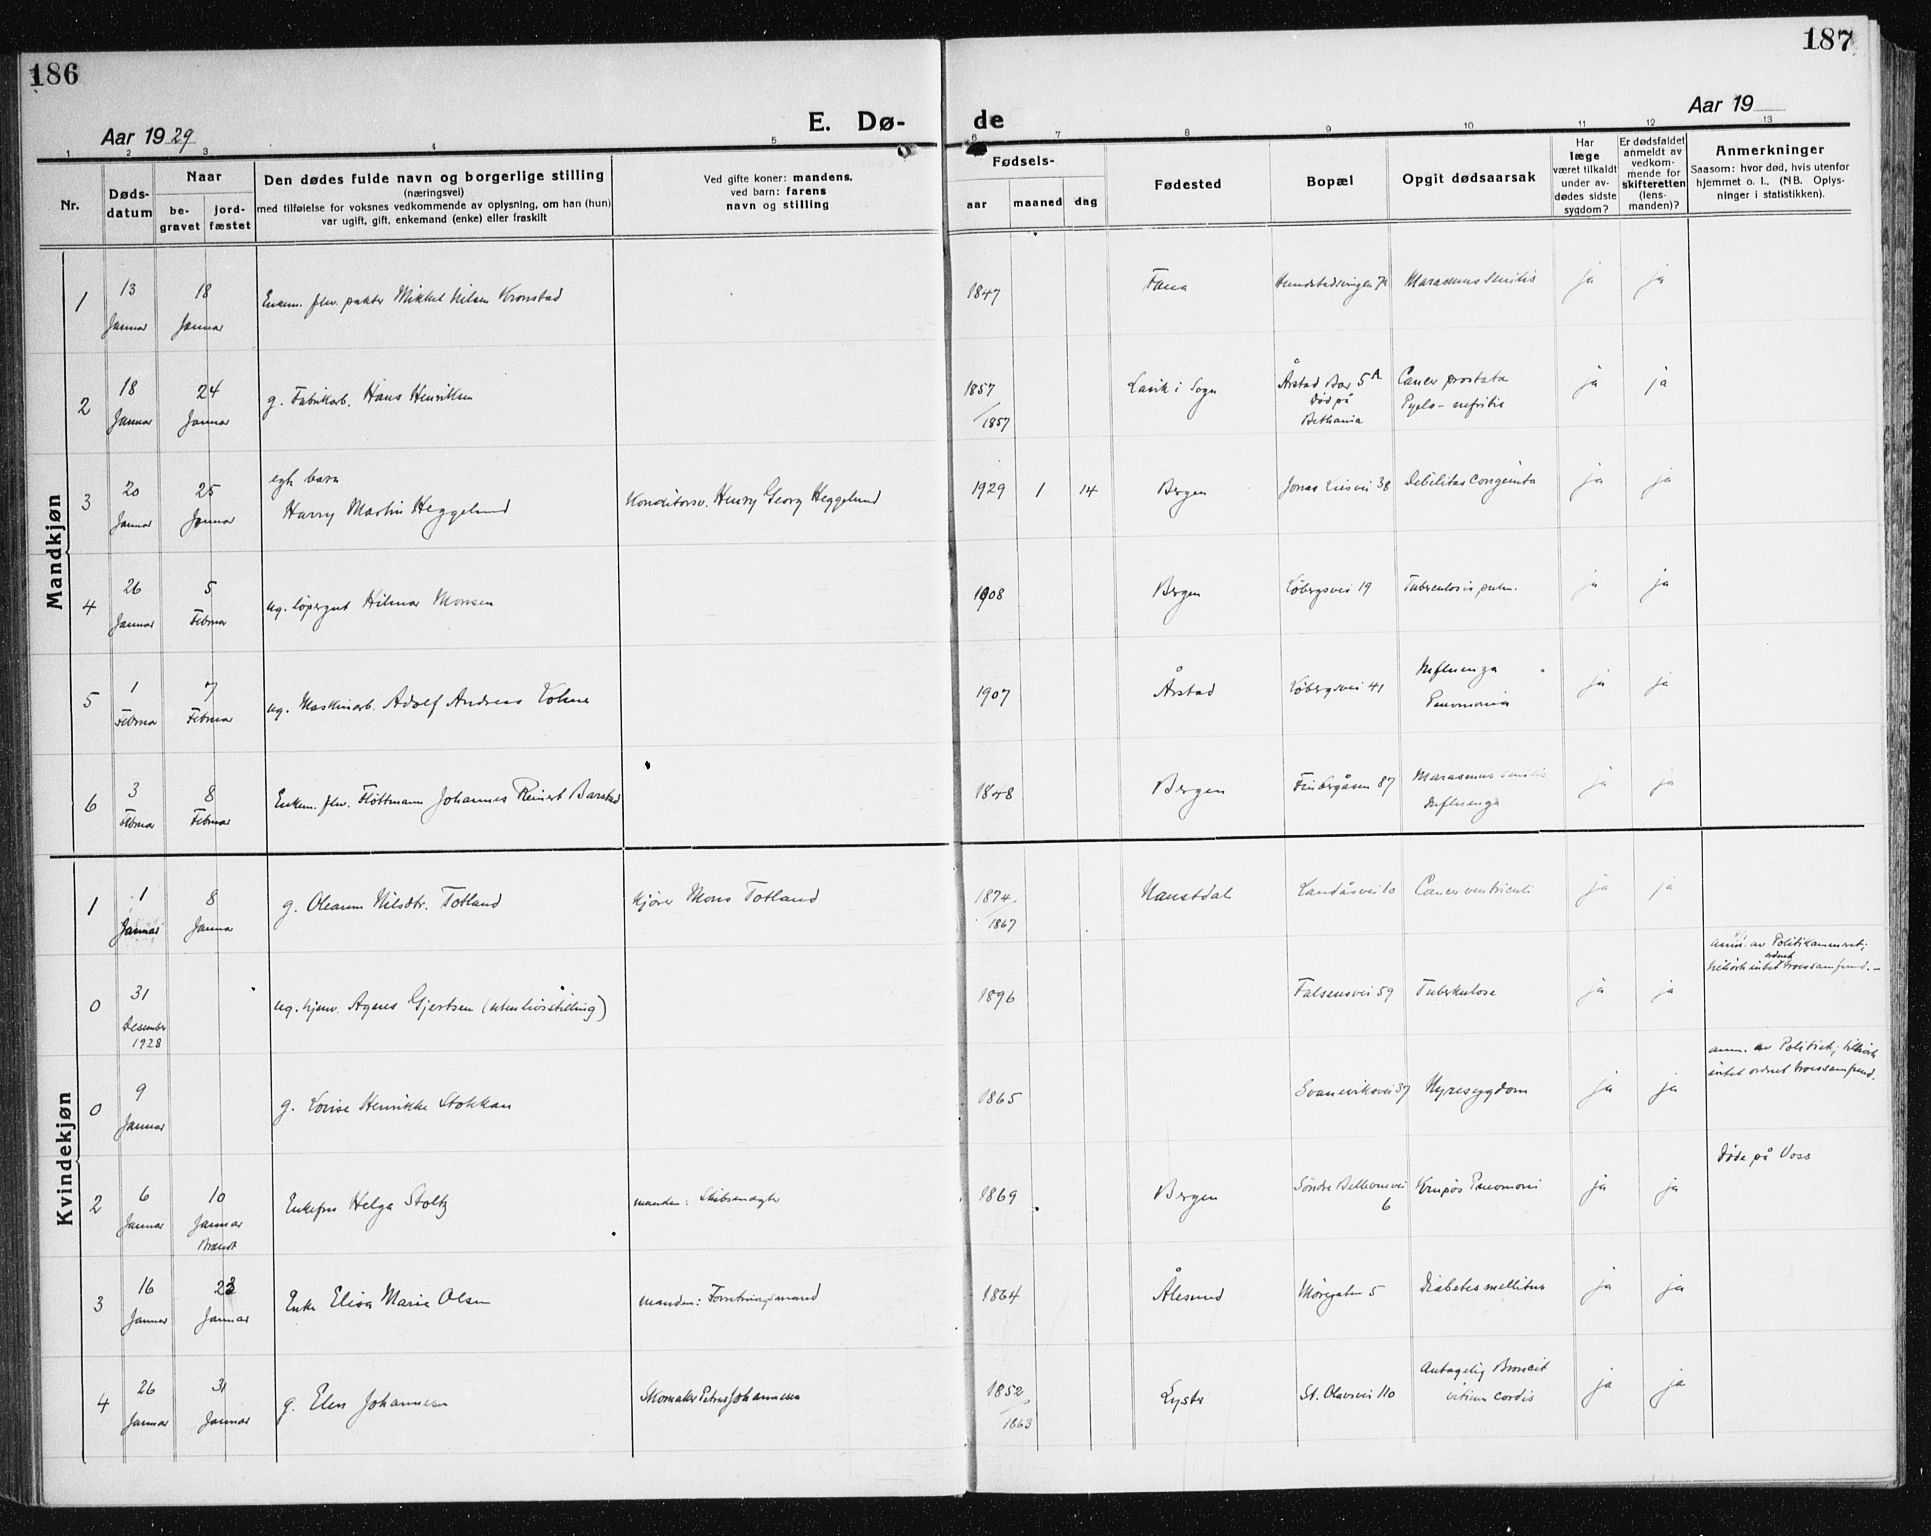 186
187
Aar 1929
E. Dø-
de
Aar 19
1 2 3 4 5 6 7 8 9 10 11 12 13
Nr.
Døds-
datum
Naar
be-
gravet
jord-
fæstet
Den dødes fulde navn og borgerlige stilling
(næringsvei)
med tilføielse for voksnes vedkommende av oplysning, om han (hun)
var ugift, gift, enkemand (enke) eller fraskilt
Ved gifte koner: mandens,
ved barn: farens
navn og stilling
Fødsels-
aar maaned dag
Fødested
Bopæl
Opgit dødsaarsak
Har
læge
været tilkaldt
under av-
dødes sidste
sygdom?
Er dødsfaldet
anmeldt av
vedkom-
mende for
skifteretten
(lens-
manden)?
Anmerkninger
Saasom: hvor død, hvis utenfor
hjemmet o. l., (NB. Oplys-
ninger i statistikken).
Mandkjøn
1 13 Januar 18 Januar Enkem. fhv. pakker Mikkel Nilsen Kronstad 1847 Fana Marasmus senilis ja ja
2 18 Januar 24 Januar g. Fabrikarb. Hans Henriksen 1857
/1857 Lavik i Sogn Årstad 5A
Død på
Bethania Cancer prostata
Pyelo-nefritis ja ja
3 20 Januar 25 Januar egte barn
Harry Martin Heggelund Konditorsv. Henry Georg Heggelund 1929 1 14 Bergen Jonas Liesvei 38 Debilitas congenita ja ja
4 26 Januar 5 Februar ug. løpergut Hilmar Monsen 1908 Bergen Løbergsvei 19 Tuberculosis pulm. ja ja
5 1 Februar 7 Februar ug. Maskinarb. Adolf Andreas 1907 Årstad Løbergsvei 41 Influenza
Pneumonia ja ja
6 3 Februar 8 Februar Enkem. fhv. Fløttmann Johannes Reinert Barstad 1848 Bergen Finbergåsen 87 Marasmus senilis
Influenza ja ja
Kvindekjøn
1 1 Januar 8 Januar g. Oleanna Nilsdtr. Totland kjører Mons Totland 1874
/1867 Naustdal Landåsvei 10 Cancer ventriculi ja ja
0 31 Desember
1928 ug. hjemv. Agnes Gjertsen (uten livsstilling) 1896 Falsensvei 59 Tuberkulose ja ja anm. av Politikammeret;
tilhørte intet ordnet trossamfund.-
0 9 Januar g. Lovise Henrikke Stokkan 1865 Svaneviksvei 37 Nyresygdom ja ja anm. av Politiek; tilhørte
intet ordnet trossamfund.
2 6 Januar 10 Januar
Brandt Enkefru Helga Stoltz manden: Skibsmægler 1869 Bergen Søndre
6 Krupøs Pneumoni ja ja Døde på Voss
3 16 Januar 23 Januar Enke Elisa Marie Olsen manden: Forretningsmand 1864 Ålesund Møregaten 5 Diabetes mellitus ja ja
4 26 Januar 31 Januar g. Elen Johannesen Skomaker Petrus Johannesen 1852
/1863 Lyster St. Olavsvei 110 Antagelig Broncit
vitium cordis ja ja